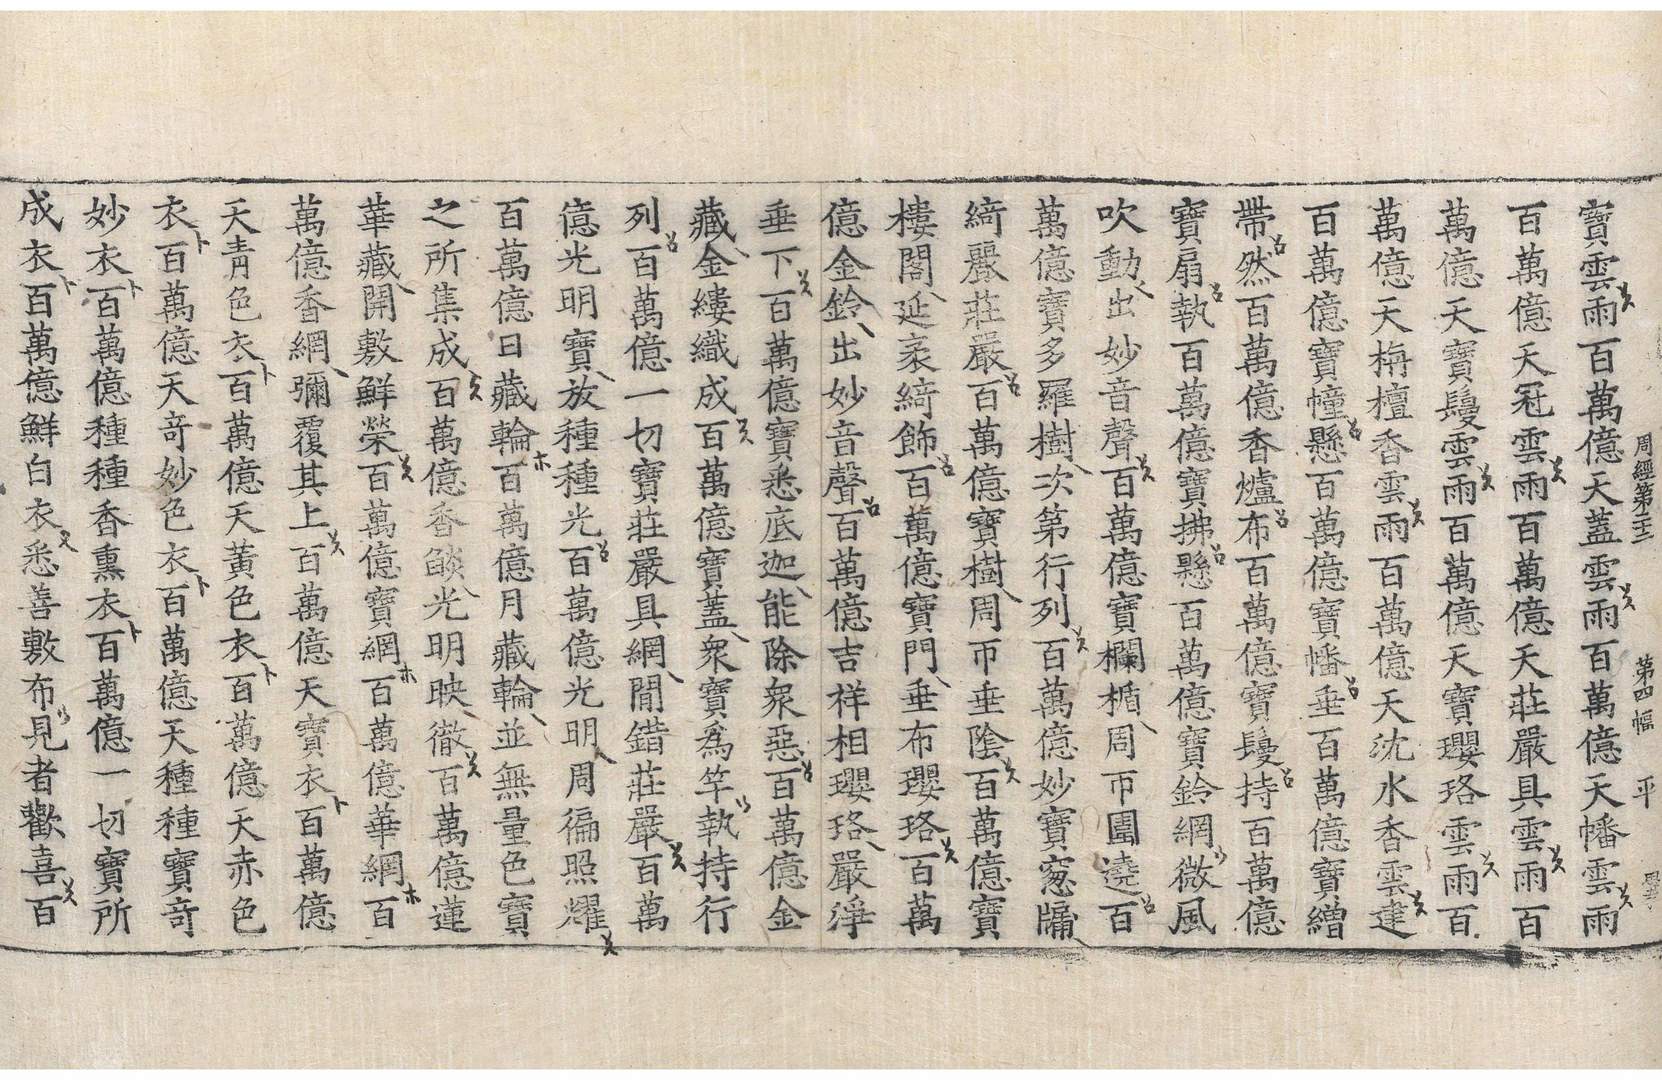 周經第二十二 第四幅 平
寶雲雨百萬億天蓋雲雨百萬億天幡雲雨
百萬億天冠雲雨百萬億天莊嚴具雲雨百
萬億天寶鬘雲雨百萬億天寶瓔珞雲雨百
萬億天栴檀香雲雨百萬億天沈水香雲建
百萬億寶幢懸百萬億寶幡垂百萬億寶繒
帶然百萬億香爐布百萬億寶鬘持百萬億
寶扇執百萬億寶拂懸百萬億寶鈴網微風
吹動出妙音聲百萬億寶欄楯周帀圍遶百
萬億寶多羅樹次第行列百萬億妙寶窓牖
綺麗莊嚴百萬億寶樹周帀垂陰百萬億寶
樓閣延袤綺飾百萬億寶門垂布瓔珞百萬
億金鈴出妙音聲百萬億吉祥相瓔珞嚴淨
垂下百萬億寶悉底迦能除衆惡百萬億金
藏金縷織成百萬億寶蓋衆寶為竿執持行
列百萬億一切寶莊嚴具網閒錯莊嚴百萬
億光明寶放種種光百萬億光明周徧照耀
百萬億日藏輪百萬億月藏輪並無量色寶
之所集成百萬億香燄光明映徹百萬億蓮
華藏開敷鮮榮百萬億寶網百萬億華網百
萬億香網彌覆其上百萬億天寶衣百萬億
天青色衣百萬億天黃色衣百萬億天赤色
衣百萬億天奇妙色衣百萬億天種種寶奇
妙衣百萬億種種香熏衣百萬億一切寶所
成衣百萬億鮮白衣悉善敷布見者歡喜百